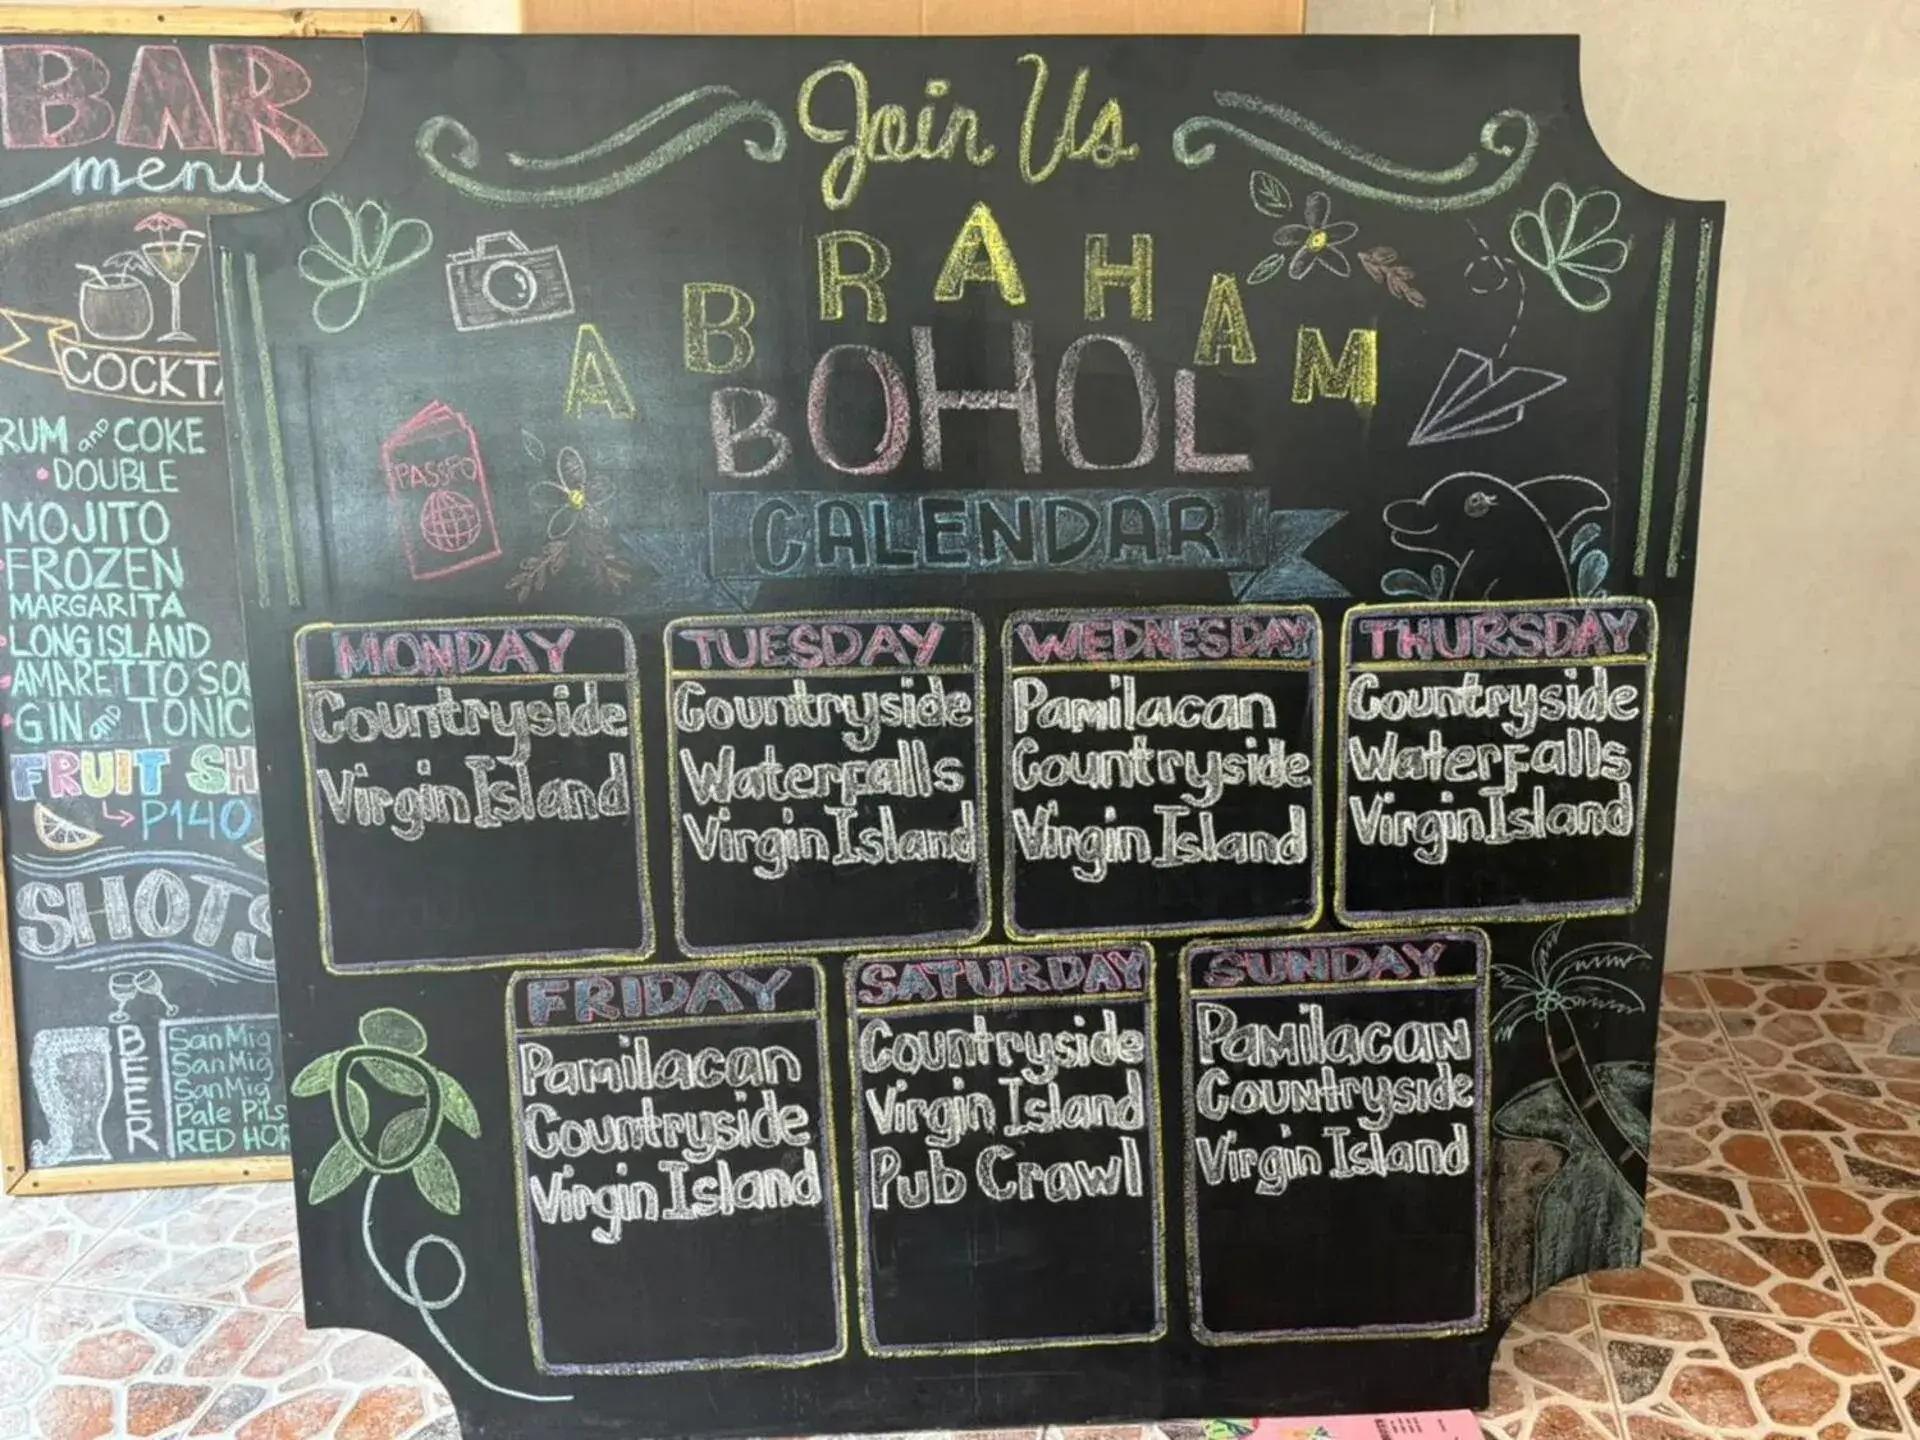 BAR
menu
COCKT
RUM and COKE
DOUBLE
MOJITO
FROZEN
MARGARITA
LONG ISLAND
AMARETTO SO
GIN and TONIC
FRUIT SH
P140
SHOTS
BEER
San Mig
San Mig
San Mig
Pale Pils
RED HOR
Join Us
ABRAHAM
BOHOL
CALENDAR
PASSPO
MONDAY
Countryside
Virgin Island
TUESDAY
Countryside
Waterfalls
Virgin Island
WEDNESDAY
Pamilacan
Countryside
Virgin Island
THURSDAY
Countryside
Waterfalls
Virgin Island
FRIDAY
Pamilacan
Countryside
Virgin Island
SATURDAY
Countryside
Virgin Island
Pub Crawl
SUNDAY
Pamilacan
Countryside
Virgin Island